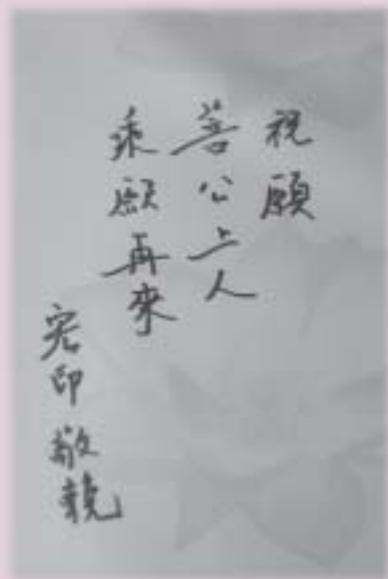 祝願
善公上人
乘願再來
宏印敬輓